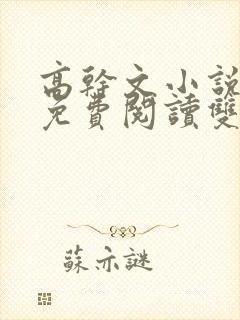 高幹文小說
免費閱讀雙
蘇亦謎